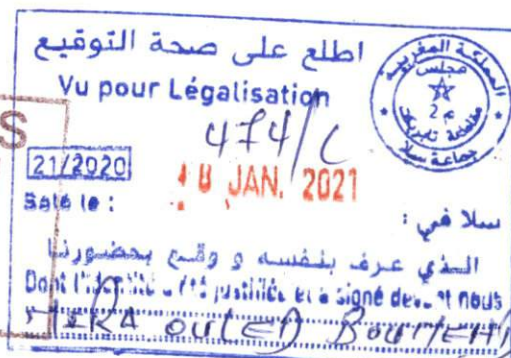 اطلع على صحة التوقيع
Vu pour Légalisation
المملكة المغربية
مجلس
م 2
جماعة سلا
S
474/C
21/2020
JAN. 2021
Salé le :
سلا في :
الذي عرف بنفسه و وقع بحضورنا
Dont l'identité a été justifiée et a signé devant nous
OULED